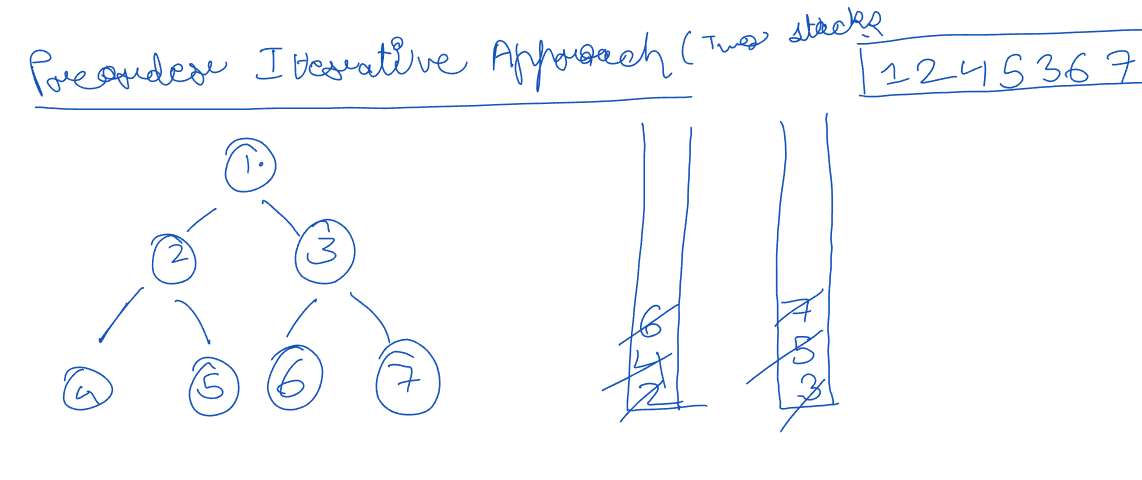 Preorder Iterative Approach (Two stacks
1 2 4 5 3 6 7
1
2 3
4 5 6 7
6 7
4 5
2 3